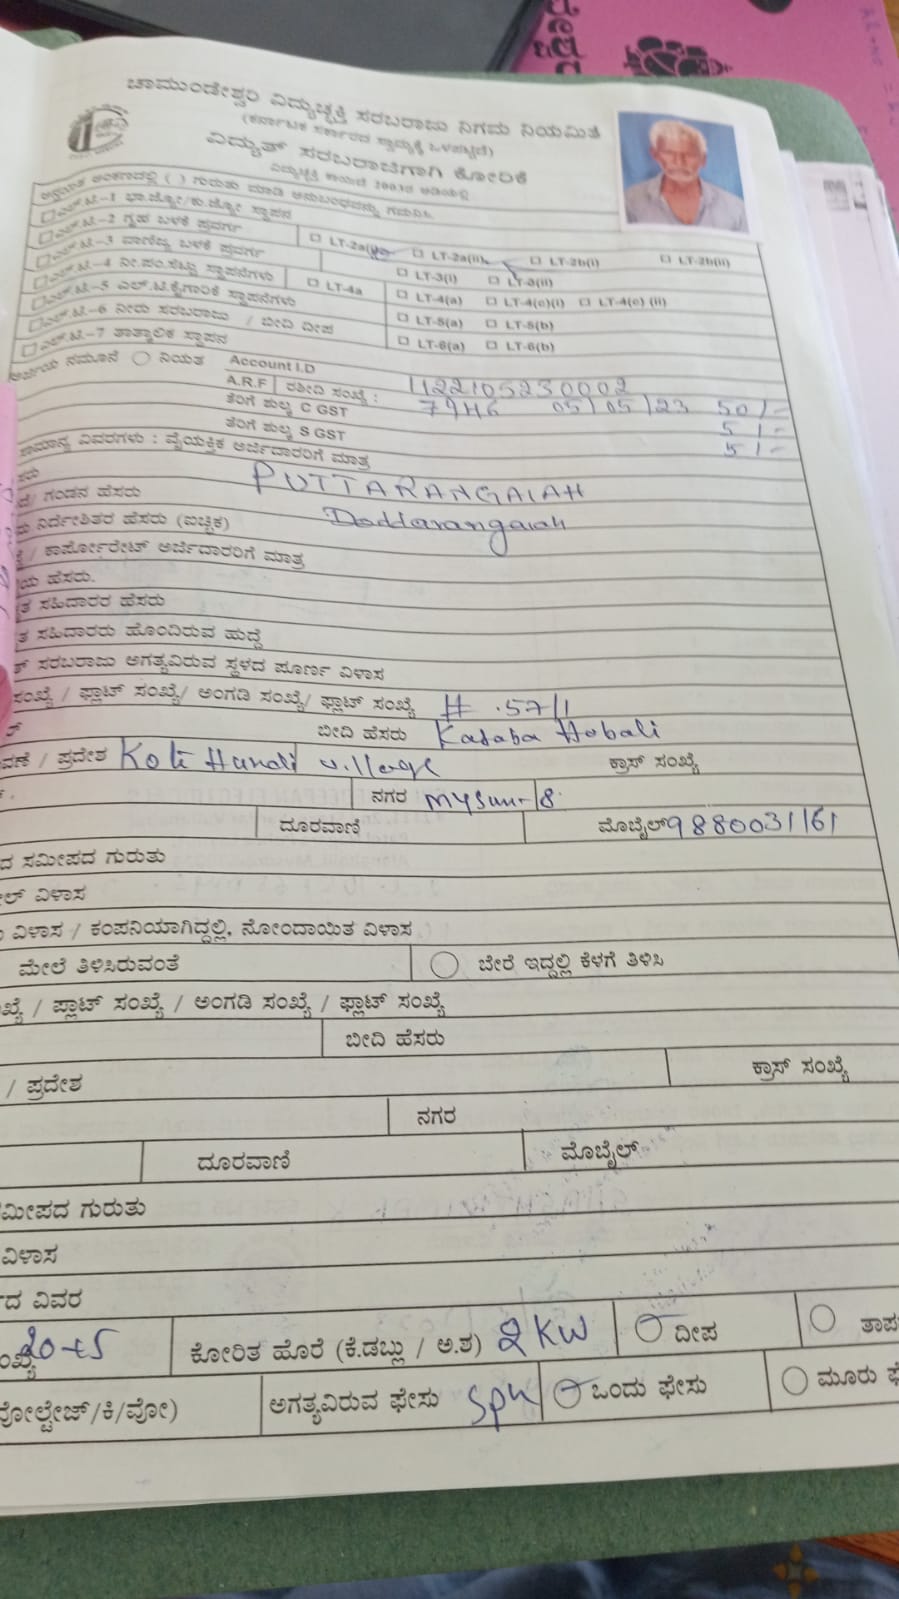 ಚಾಮುಂಡೇಶ್ವರಿ ವಿದ್ಯುಚ್ಛಕ್ತಿ ಸರಬರಾಜು ನಿಗಮ ನಿಯಮಿತ
(ಕರ್ನಾಟಕ ಸರ್ಕಾರದ ಸ್ವಾಮ್ಯಕ್ಕೆ ಒಳಪಟ್ಟಿದೆ)
ವಿದ್ಯುತ್ ಸರಬರಾಜಿಗಾಗಿ ಕೋರಿಕೆ
ವಿದ್ಯುಚ್ಛಕ್ತಿ ಕಾಯಿದೆ 2003ರ ಅಡಿಯಲ್ಲಿ
ಅಂಕಣದಲ್ಲಿ ( ) ಗುರುತು ಮಾಡಿ ಅನುಬಂಧವನ್ನು ಗಮನಿಸಿ
ಎಲ್.ಟಿ.-1 ಭಾ.ಜ್ಯೋ/ಕು.ಜ್ಯೋ ಸ್ಥಾಪನ
ಎಲ್.ಟಿ.-2 ಗೃಹ ಬಳಕೆ ಪ್ರವರ್ಗ LT-2a(i) LT-2a(ii) LT-2b(i) LT-2b(ii)
ಎಲ್.ಟಿ.-3 ವಾಣಿಜ್ಯ ಬಳಕೆ ಪ್ರವರ್ಗ LT-3(i) LT-3(ii)
ಎಲ್.ಟಿ.-4 ನೀ.ಪಂ.ಸೆಟ್ಟು ಸ್ಥಾಪನೆಗಳು LT-4a LT-4(a) LT-4(c)(i) LT-4(c) (ii)
ಎಲ್.ಟಿ.-5 ಎಲ್.ಟಿ.ಕೈಗಾರಿಕೆ ಸ್ಥಾಪನೆಗಳು LT-5(a) LT-5(b)
ಎಲ್.ಟಿ.-6 ನೀರು ಸರಬರಾಜು / ಬೀದಿ ದೀಪ LT-6(a) LT-6(b)
ಎಲ್.ಟಿ.-7 ತಾತ್ಕಾಲಿಕ ಸ್ಥಾಪನ
ಅರ್ಜಿಯ ನಮೂನೆ ನಿಯತ Account I.D 1122105230002
A.R.F ರಶೀದಿ ಸಂಖ್ಯೆ : 7946 05/05/23 50/-
ತೆರಿಗೆ ಶುಲ್ಕ C GST 5/-
ತೆರಿಗೆ ಶುಲ್ಕ S GST 5/-
ಸಾಮಾನ್ಯ ವಿವರಗಳು : ವೈಯಕ್ತಿಕ ಅರ್ಜಿದಾರರಿಗೆ ಮಾತ್ರ
PUTTARANGAIAH
ಗಂಡನ ಹೆಸರು Doddarangaiah
ನಿರ್ದೇಶಿತರ ಹೆಸರು (ಐಚ್ಛಿಕ)
/ ಕಾರ್ಪೋರೇಟ್ ಅರ್ಜಿದಾರರಿಗೆ ಮಾತ್ರ
ಹೆಸರು.
ಸಹಿದಾರರ ಹೆಸರು
ಸಹಿದಾರರು ಹೊಂದಿರುವ ಹುದ್ದೆ
ಸರಬರಾಜು ಅಗತ್ಯವಿರುವ ಸ್ಥಳದ ಪೂರ್ಣ ವಿಳಾಸ
ಸಂಖ್ಯೆ / ಫ್ಲಾಟ್ ಸಂಖ್ಯೆ/ ಅಂಗಡಿ ಸಂಖ್ಯೆ/ ಫ್ಲಾಟ್ ಸಂಖ್ಯೆ # .57/1
ಬೀದಿ ಹೆಸರು Kasaba Hobali
/ ಪ್ರದೇಶ Koti Hundi village ಕ್ರಾಸ್ ಸಂಖ್ಯೆ
ನಗರ Mysuru-8
ದೂರವಾಣಿ ಮೊಬೈಲ್ 9880031161
ಸಮೀಪದ ಗುರುತು
ವಿಳಾಸ
ವಿಳಾಸ / ಕಂಪನಿಯಾಗಿದ್ದಲ್ಲಿ, ನೋಂದಾಯಿತ ವಿಳಾಸ
ಮೇಲೆ ತಿಳಿಸಿರುವಂತೆ ಬೇರೆ ಇದ್ದಲ್ಲಿ ಕೆಳಗೆ ತಿಳಿಸಿ
/ ಪ್ಲಾಟ್ ಸಂಖ್ಯೆ / ಅಂಗಡಿ ಸಂಖ್ಯೆ / ಫ್ಲಾಟ್ ಸಂಖ್ಯೆ
ಬೀದಿ ಹೆಸರು
/ ಪ್ರದೇಶ ಕ್ರಾಸ್ ಸಂಖ್ಯೆ
ನಗರ
ದೂರವಾಣಿ ಮೊಬೈಲ್
ಗುರುತು
ವಿಳಾಸ
ವಿವರ
20+5 ಕೋರಿತ ಹೊರೆ (ಕೆ.ಡಬ್ಲು / ಅ.ಶ) 2 KW ದೀಪ
ವೋಲ್ಟೇಜ್/ಕಿ/ವೋ) ಅಗತ್ಯವಿರುವ ಫೇಸು sph ಒಂದು ಫೇಸು ಮೂರು